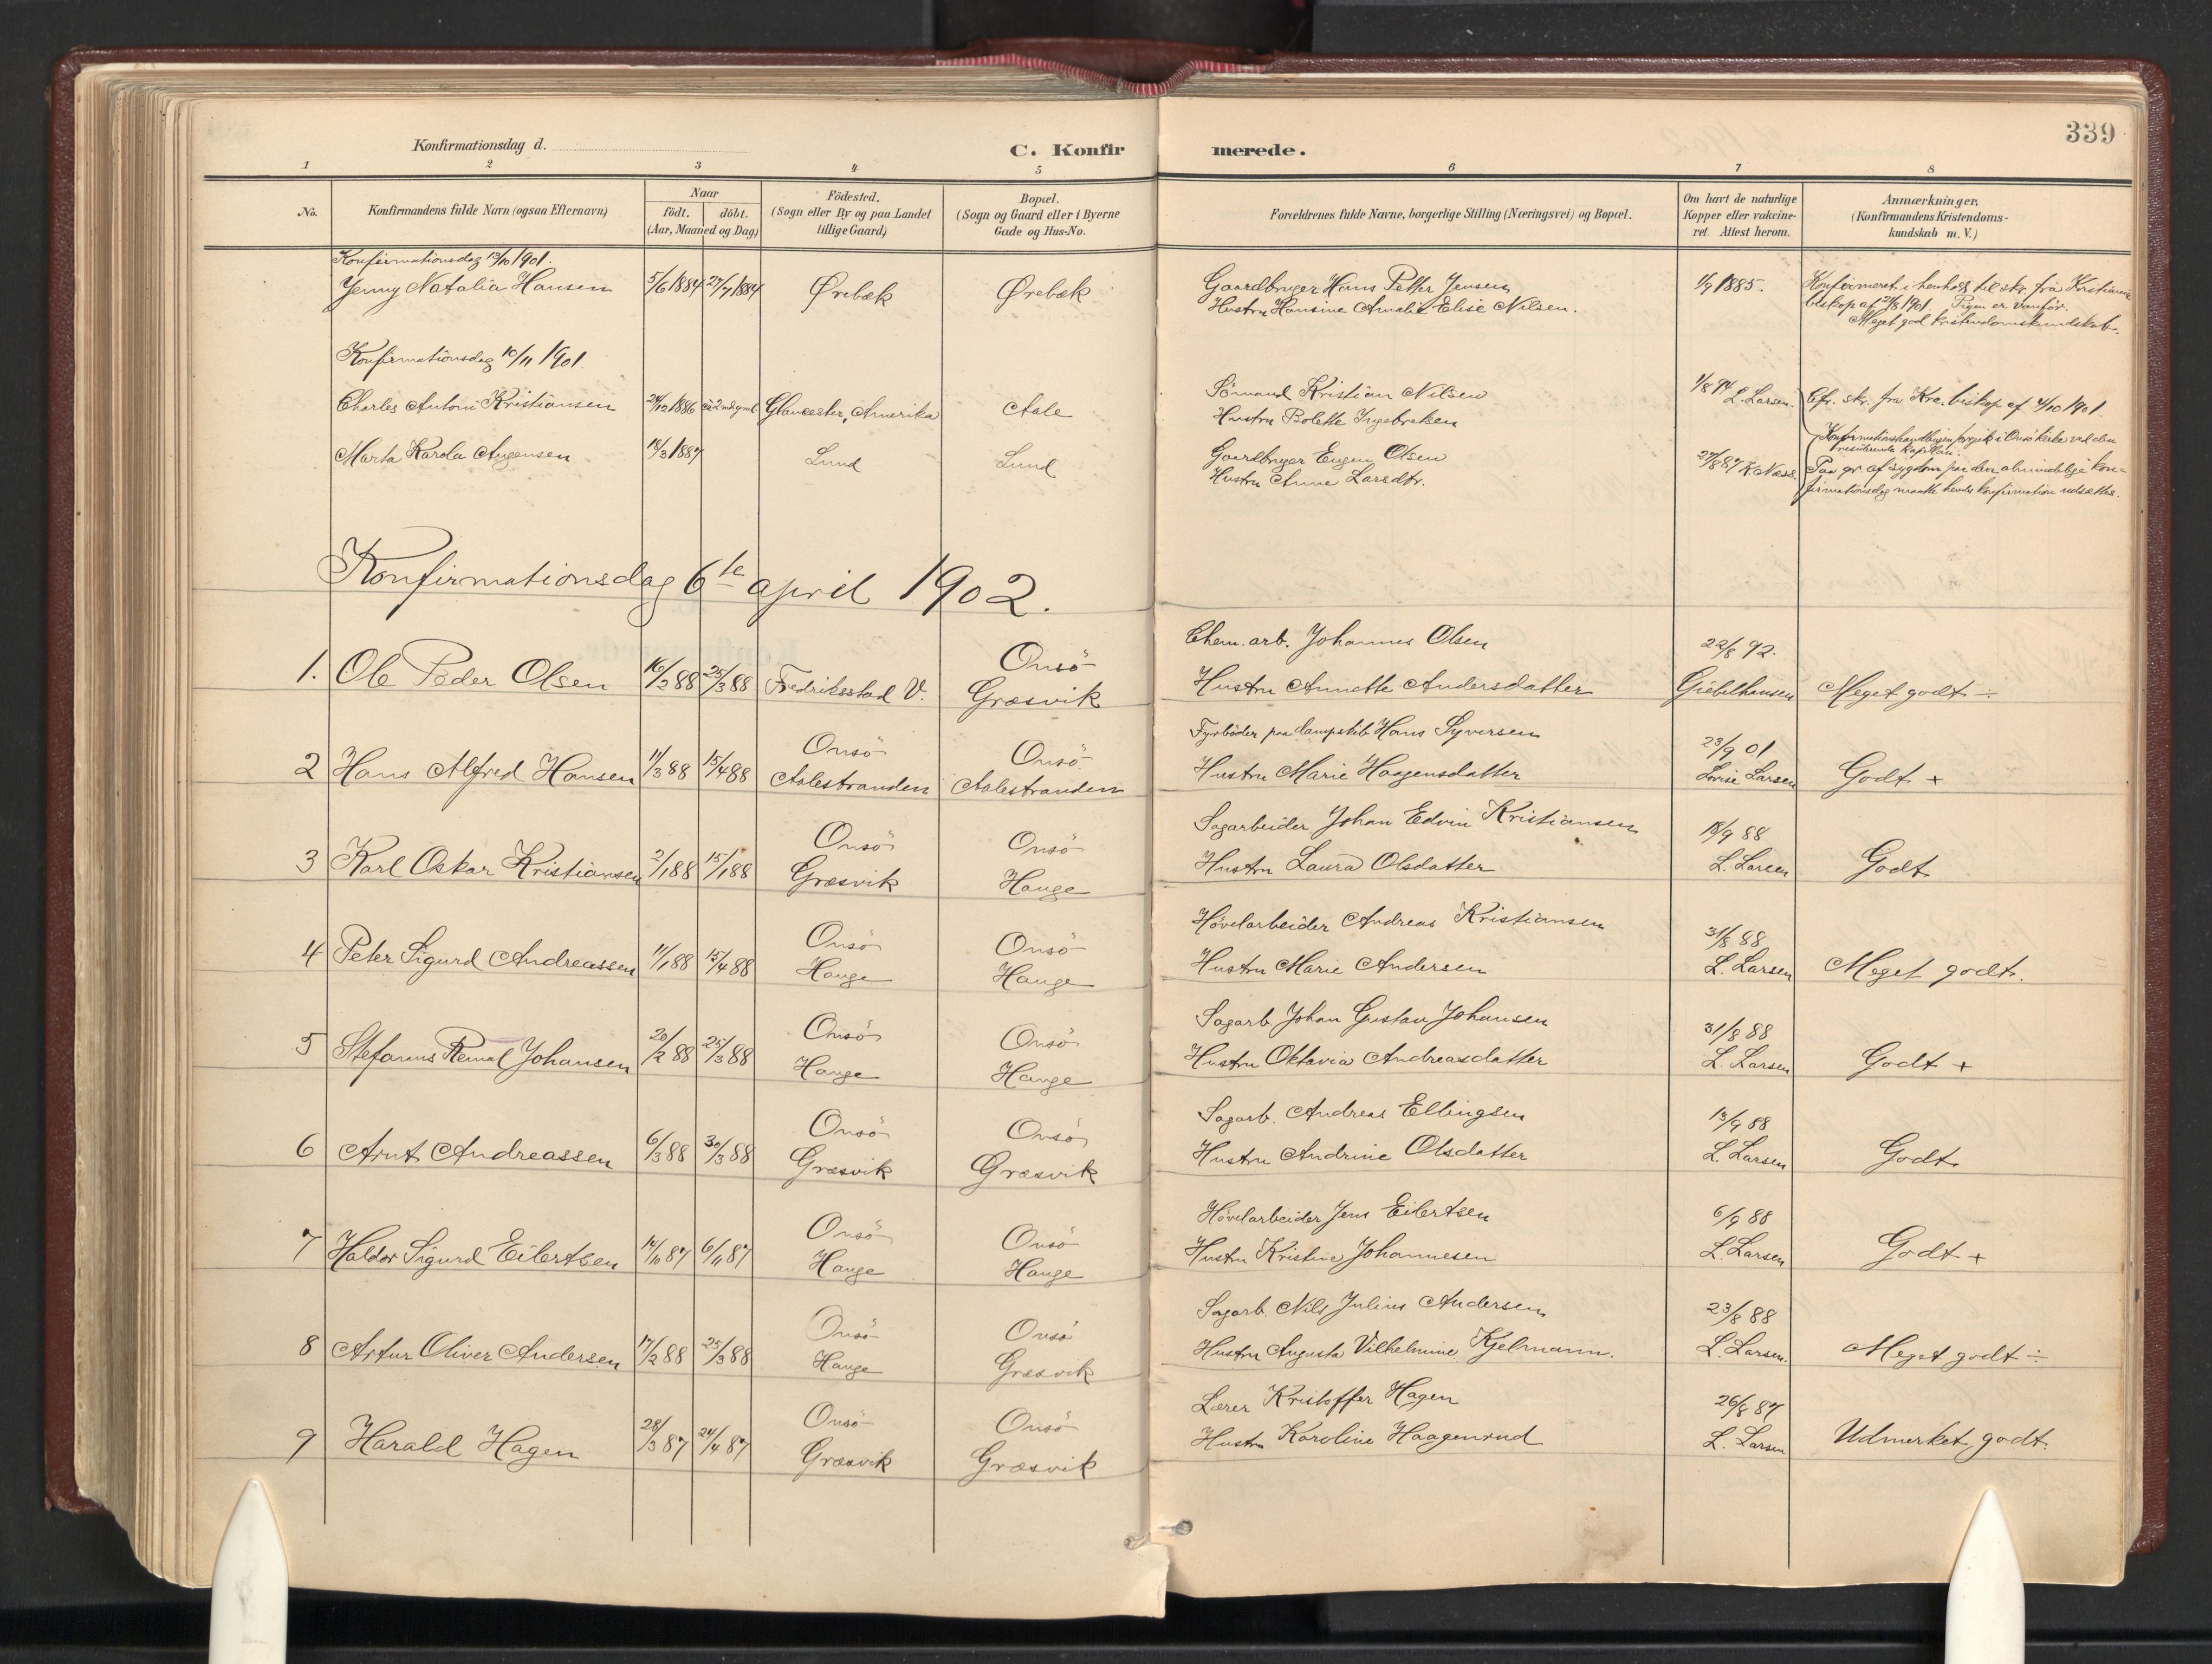 339
Konfirmationsdag d.
C. Konfirmerede.
1 2 3 4 5 6 7 8
No.
Konfirmandens fulde Navn (ogsaa Efternavn)
Naar
födt. döbt.
(Aar, Maaned og Dag)
Födested.
(Sogn eller By og paa Landet
tillige Gaard)
Bopæl.
(Sogn og Gaard eller i Byerne
Gade og Hus-No.
Forældrenes fulde Navne, borgerlige Stilling (Næringsvei) og Bopæl.
Om havt de naturlige
Kopper eller vakcine-
ret. Attest herom.
Anmærkninger.
(Konfirmandens Kristendoms-
kundskab m. V.)
Konfirmationsdag 13/10 1901.
Jenny Natalia Hansen 5/6 1884 27/7 1884 Ørebæk Ørebæk
Gaardbruger Hans Petter Jensen
Hustru Hansine Amalie Elise Nilsen.
1/9 1885.
Konfirmeret i henhold til skr. fra Kristiania
biskop af 21/8 1901. Pigen er vanför.
Meget god kristendomskundskab.
Konfirmationsdag 10/11 1901.
Charles Antoni Kristiansen 24/12 1886 ca 2 mdr gml Gloucester, Amerika Aale
Sömand Kristian Nilsen
Hustru Bolette Ingebretsen
1/8 94 L. Larsen.
Cfr. skr. fra Kra. biskop af 4/10 1901.
Marta Karola Augensen 18/3 1887 Lund Lund
Gaardbruger Eugen Olsen
Hustru Anne Larsdtr.
27/8 87 K Næss.
Konfirmationshandlingen foregik i Onsö kirke ved den
residerende kapellan.
Paa gr. af sygdom paa den almindelige kon=
firmationsdag maatte hendes konfirmation udsættes.
Konfirmationsdag 6te april 1902.
1. Ole Peder Olsen 16/2 88 25/3 88 Fredriksstad V. Onsö Græsvik
Chem. arb. Johannes Olsen
Hustru Annette Andersdatter
22/8 92. Giebelhausen Meget godt ÷
2 Hans Alfred Hansen 11/3 88 15/4 88 Onsö Aalestranden Onsö Aalestranden
Fyrböder paa dampskib Hans Syversen
Hustru Marie Haagensdatter
23/9 01 Lovise Larsen Godt +
3 Karl Oskar Kristiansen 2/1 88 15/1 88 Onsö Græsvik Onsö Hauge
Sagarbeider Johan Edvin Kristiansen
Hustru Laura Olsdatter
18/9 88 L. Larsen Godt
4 Peter Sigurd Andreassen 11/1 88 15/4 88 Onsö Hauge Onsö Hauge
Hövelarbeider Andreas Kristiansen
Hustru Marie Andersen
31/8 88 L. Larsen Meget godt.
5 Stefanus Remal Johansen 20/2 88 25/3 88 Onsö Hauge Onsö Hauge
Sagarb. Johan Gustav Johansen
Hustru Oktavia Andreasdatter
31/8 88 L. Larsen Godt +
6 Arnt Andreassen 6/3 88 30/3 88 Onsö Græsvik Onsö Græsvik
Sagarb. Andreas Ellingsen
Hustru Andrine Olsdatter
13/9 88 L. Larsen Godt
7 Haldor Sigurd Eilertsen 14/10 87 6/11 87 Onsö Hauge Onsö Hauge
Hövelarbeider Jens Eilertsen
Hustru Kristine Johannesen
6/9 88 L. Larsen Godt +
8 Artur Oliver Andersen 17/2 88 25/3 88 Onsö Hauge Onsö Græsvik
Sagarb. Nils Julius Andersen
Hustru Augusta Vilhelmine Kjelmann.
23/8 88 L. Larsen. Meget godt ÷
9 Harald Hagen 28/3 87 24/4 87 Onsö Græsvik Onsö Græsvik
Lærer Kristoffer Hagen
Hustru Karoline Haagenrud
26/8 87 L. Larsen Udmerket godt.